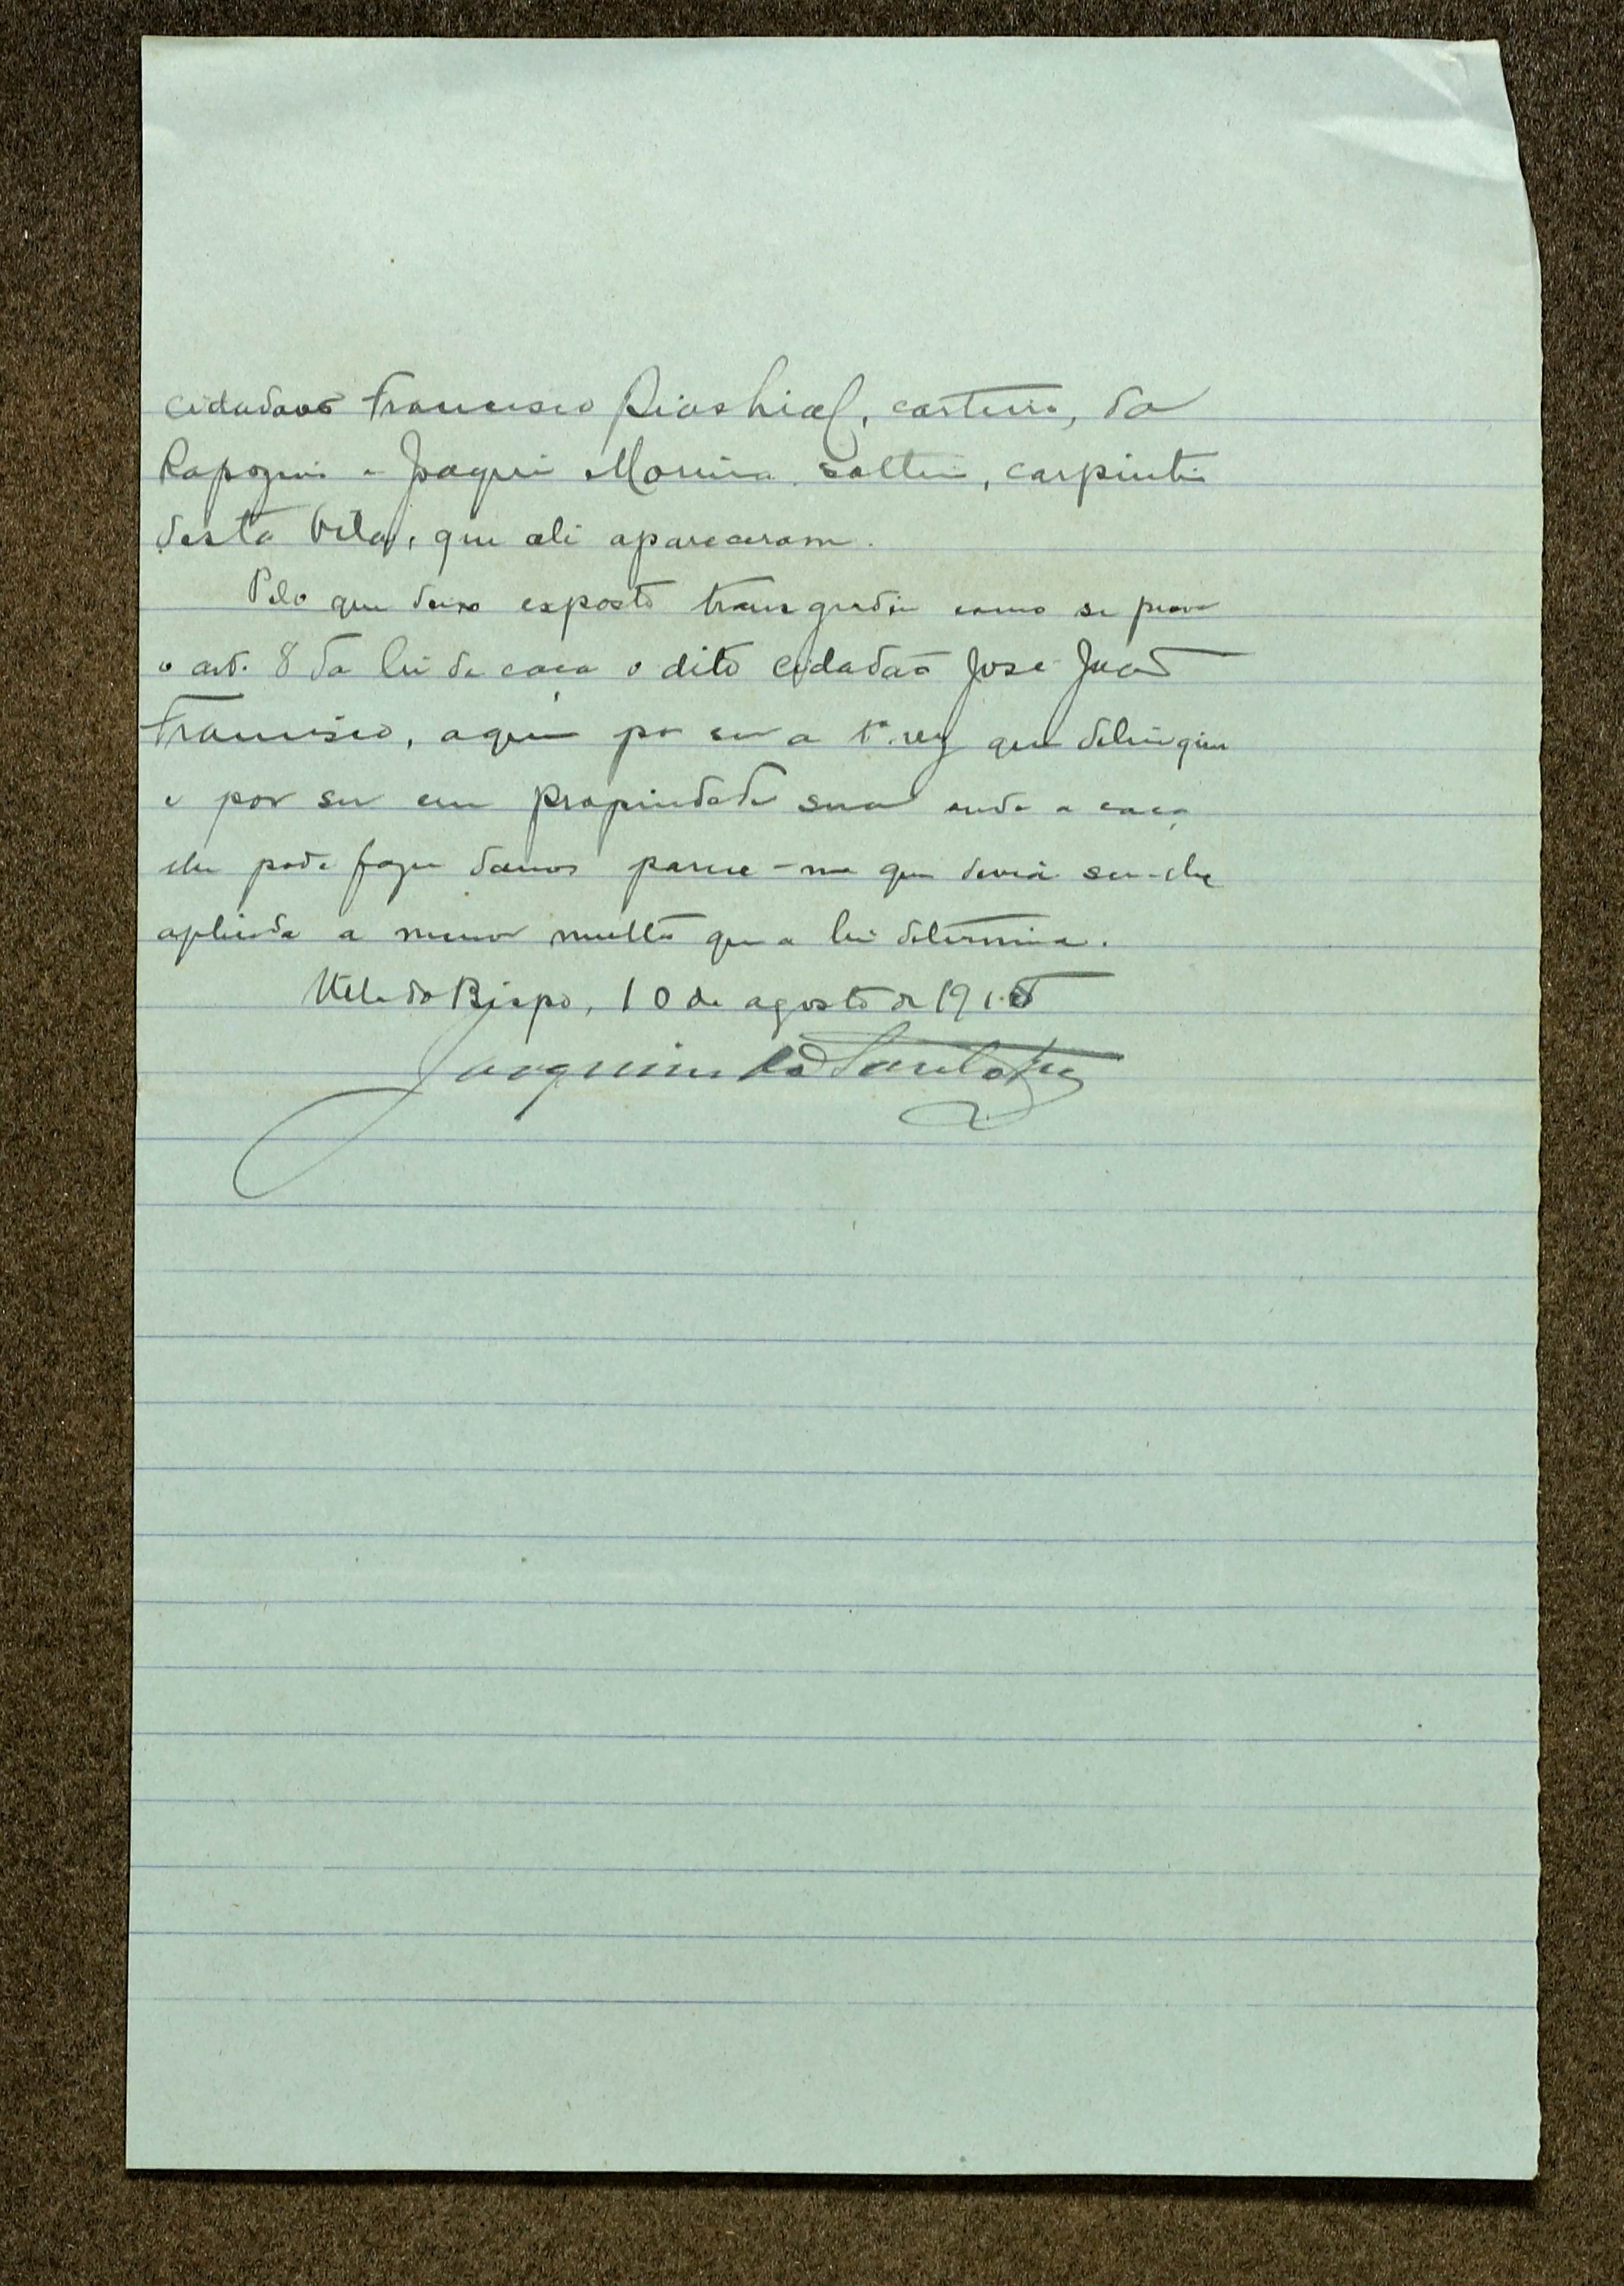 cidadãos Francisco Dias Leal, carteiro, da
Raposeira e Joaquim Moreira solteiro, carpinteiro
desta Vila, que ali apareceram.
Pelo que deixo exposto transgrediu como se prova
o art. 8 da lei da caça o dito cidadão José João
Francisco, a quem por ser a 1ª vez que delinquiu
e por ser em propriedade sua onde a caça
lhe pode fazer danos parece-me que deveria ser-lhe
aplicada a menor multa que a lei determina.
Vila do Bispo, 10 de agosto de 191
Joaquim